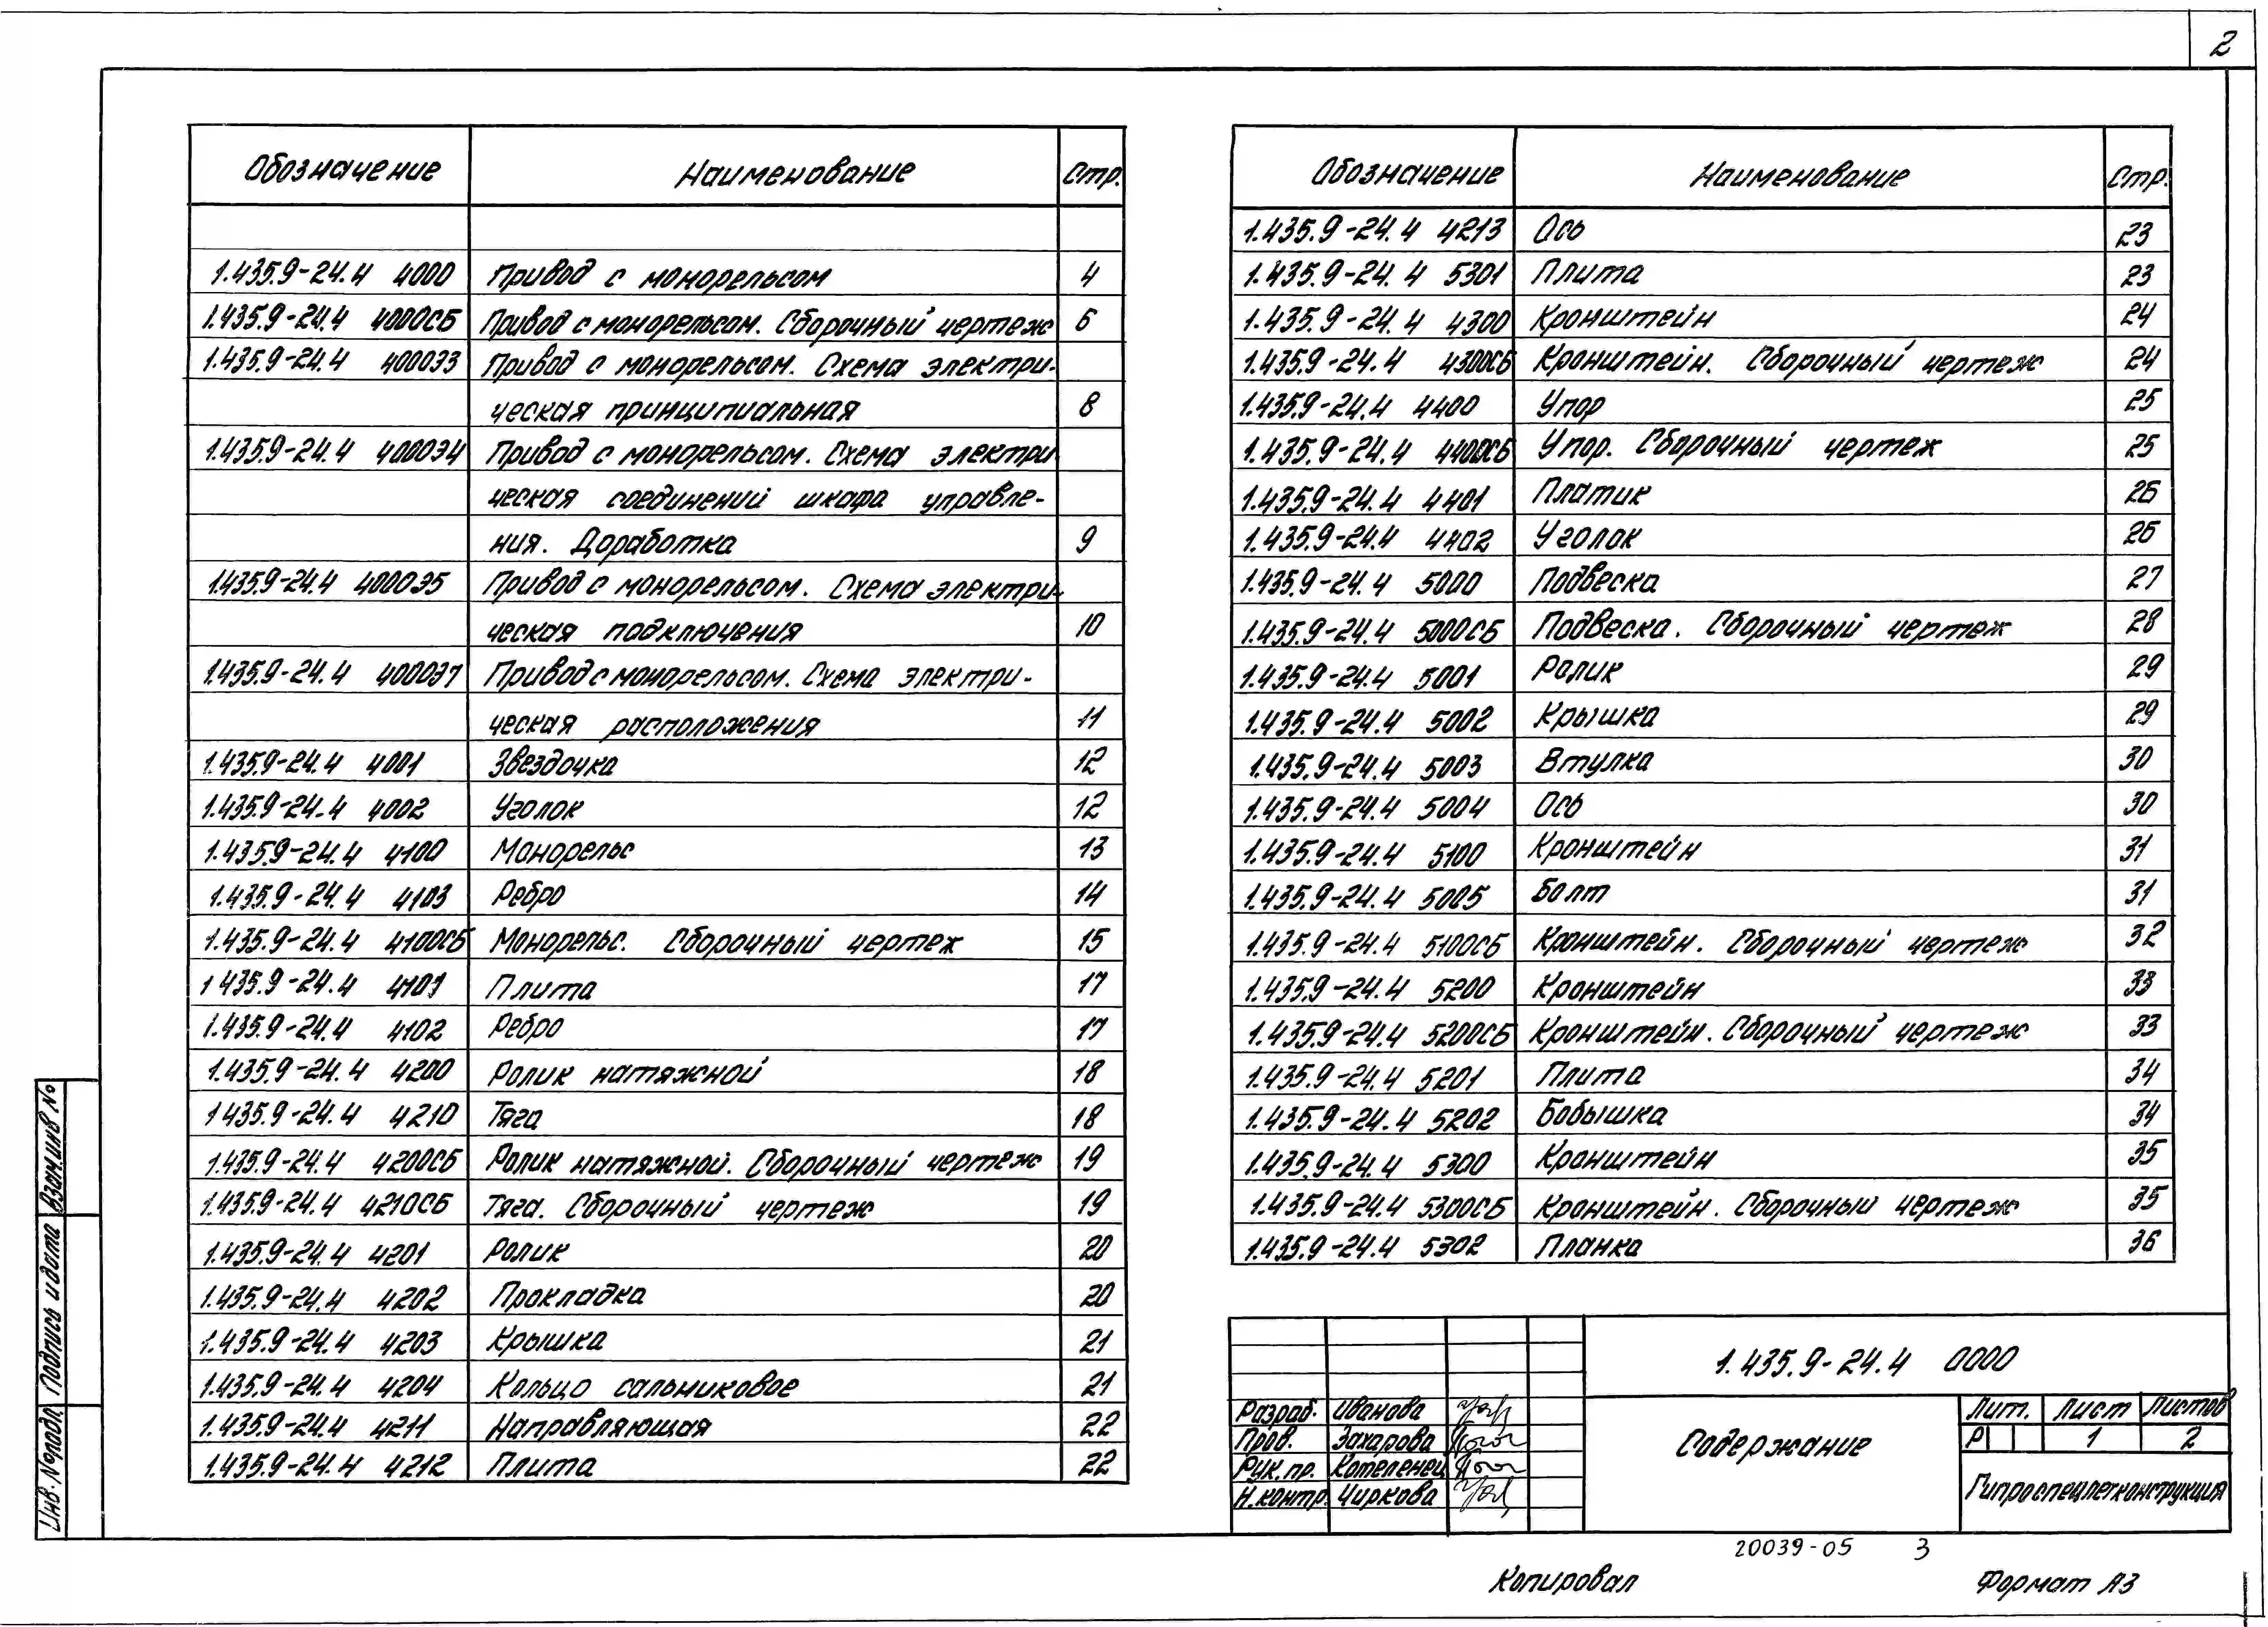 2
Обозначение Наименование Стр.
1.435.9-24.4 4000 Привод с монорельсом 4
1.435.9-24.4 4000СБ Привод с монорельсом. Сборочный чертеж 6
1.435.9-24.4 4000Э3 Привод с монорельсом. Схема электри-
ческая принципиальная 8
1.435.9-24.4 4000Э4 Привод с монорельсом. Схема электри
ческая соединений шкафа управле-
ния. Доработка 9
1.435.9-24.4 4000Э5 Привод с монорельсом. Схема электри-
ческая подключения 10
1.435.9-24.4 4000Э7 Привод с монорельсом. Схема электри-
ческая расположения 11
1.435.9-24.4 4001 Звездочка 12
1.435.9-24.4 4002 Уголок 12
1.435.9-24.4 4100 Монорельс 13
1.435.9-24.4 4103 Ребро 14
1.435.9-24.4 4100СБ Монорельс. Сборочный чертеж 15
1 435.9-24.4 4101 Плита 17
1.435.9-24.4 4102 Ребро 17
1.435.9-24.4 4200 Ролик натяжной 18
1 435.9-24.4 4210 Тяга 18
1.435.9-24.4 4200СБ Ролик натяжной. Сборочный чертеж 19
1.435.9-24.4 4210СБ Тяга. Сборочный чертеж 19
1.435.9-24.4 4201 Ролик 20
1.435.9-24.4 4202 Прокладка 20
1.435.9-24.4 4203 Крышка 21
1.435.9-24.4 4204 Кольцо сальниковое 21
1.435.9-24.4 4211 Направляющая 22
1.435.9-24.4 4212 Плита 22
Обозначение Наименование Стр.
1.435.9-24.4 4213 Ось 23
1.435.9-24.4 5301 Плита 23
1.435.9-24.4 4300 Кронштейн 24
1.435.9-24.4 4300СБ Кронштейн. Сборочный чертеж 24
1.435.9-24.4 4400 Упор 25
1.435.9-24.4 4400СБ Упор. Сборочный чертеж 25
1.435.9-24.4 4401 Платик 26
1.435.9-24.4 4402 Уголок 26
1.435.9-24.4 5000 Подвеска 27
1.435.9-24.4 5000СБ Подвеска. Сборочный чертеж 28
1.435.9-24.4 5001 Ролик 29
1.435.9-24.4 5002 Крышка 29
1.435.9-24.4 5003 Втулка 30
1.435.9-24.4 5004 Ось 30
1.435.9-24.4 5100 Кронштейн 31
1.435.9-24.4 5005 Болт 31
1.435.9-24.4 5100СБ Кронштейн. Сборочный чертеж 32
1.435.9-24.4 5200 Кронштейн 33
1.435.9-24.4 5200СБ Кронштейн. Сборочный чертеж 33
1.435.9-24.4 5201 Плита 34
1.435.9-24.4 5202 Бобышка 34
1.435.9-24.4 5300 Кронштейн 35
1.435.9-24.4 5300СБ Кронштейн. Сборочный чертеж 35
1.435.9-24.4 5302 Планка 36
1.435.9-24.4 0000
Разраб. Иванова
Пров. Захарова
Рук.пр. Котеленец
Н.контр. Чиркова
Содержание
Лит. Лист Листов
Р 1 2
Гипроспецлегконструкция
20039-05 3
Копировал Формат А3
Взам.инв №
Подпись и дата
Инв.№подл.